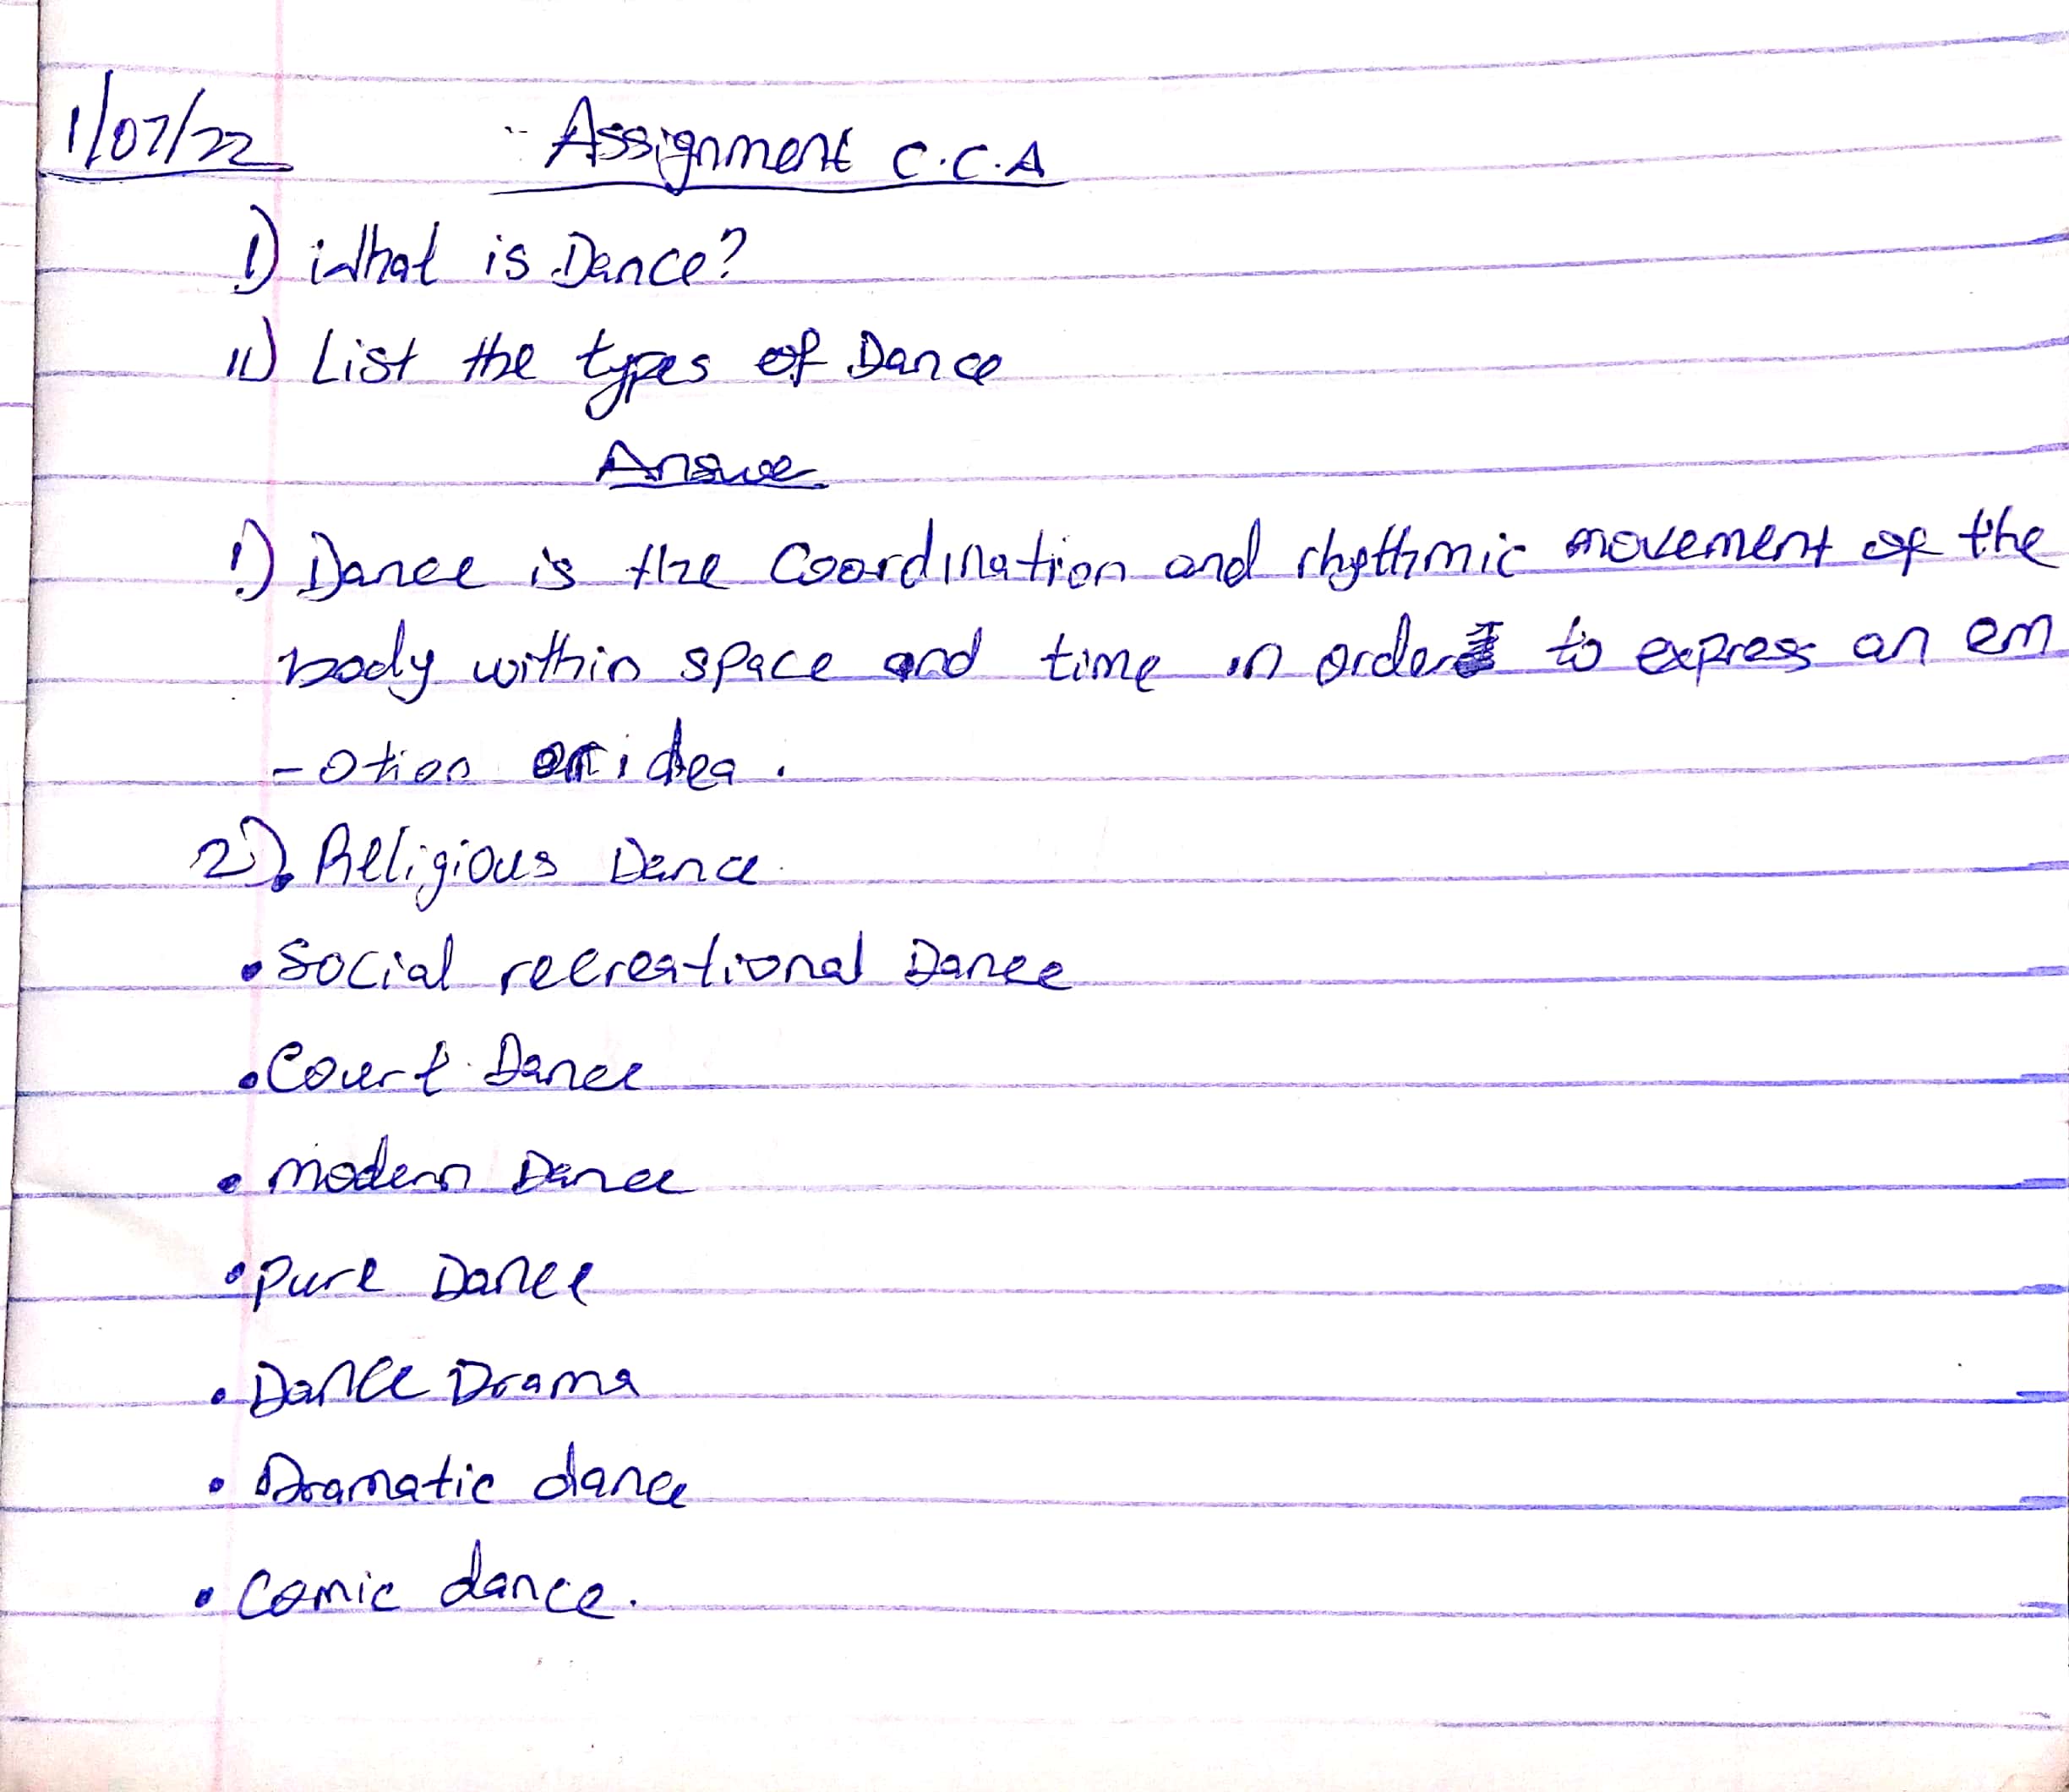 1/07/22 Assignment C.C.A
i) What is Dance?
ii) List the types of Dance
Answe
i) Dance is the Coordination and rhythmic movement of the
body within space and time in order to express an em
-otion or idea.
2) • Religious Dance
• Social recreational Dance
• Court Dance
• modern Dance
• pure Dance
• Dance Drama
• Dramatic dance
• Comic dance.